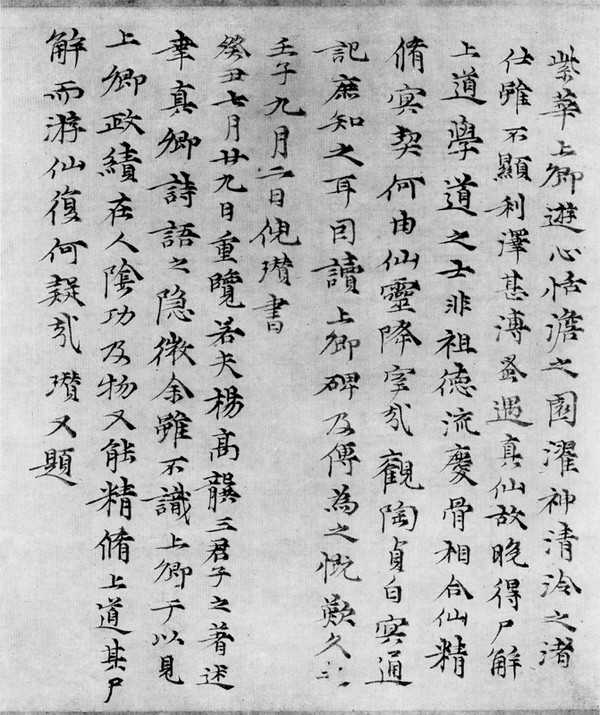 紫華上卿遊心恬澹之園濯神清泠之渚
仕雖不顯利澤甚溥蚤遇真仙故晚得尸解
上道學道之士非祖德流慶骨相合仙精
脩冥契何由仙靈降室哉觀陶貞白冥通
記庶知之耳因讀上卿碑及傳為之慨歎久
壬子九月二日倪瓚書
癸丑七月廿九日重覽若夫楊高龔三君子之著述
聿真卿詩語之隐微余雖不識上卿于以見
上卿政績在人陰功及物又能精脩上道其尸
解而游仙復何疑哉瓚又題